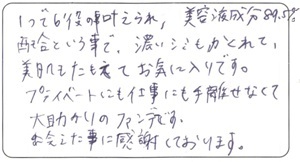 1つで6役の事叶えられ、美容液成分89.5%
配合という事で、濃いシミもかくれて、
美肌もたもてお気に入りです。
プライベートにも仕事にも手離せなくて
大助かりのファンデです。
出会えた事に感謝しております。